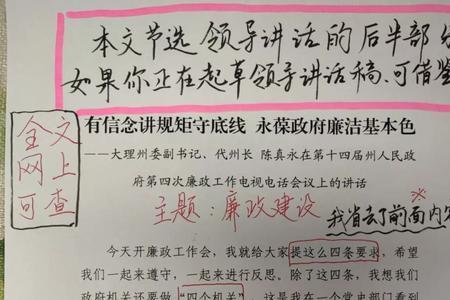 本文节选领导讲话的后半部分
如果你正在起草领导讲话稿,可借鉴
全文
网上
可查
有信念讲规矩守底线 永葆政府廉洁基本色
——大理州委副书记、代州长 陈真永在第十四届州人民政
府第四次廉政工作电视电话会议上的讲话
主题:廉政建设
※
我省去了前面内容
今天开廉政工作会,我就给大家提这么四条要求,希望
我们一起来遵守,一起来进行反思。除了这四条,我想我们
政府机关还要做“四个机关”,这是我在一个党史部门看到